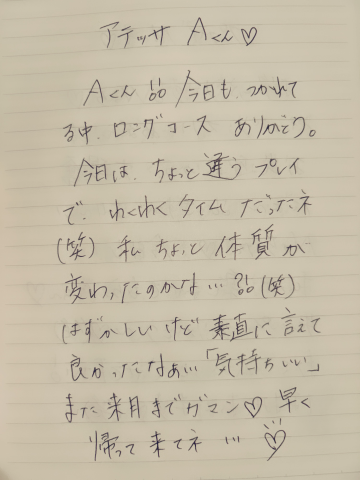 アテッサ Aくん♡
Aくん!! 今日も、つかれて
る中、ロングコース ありがとう。
今日は、ちょっと違うプレイ
で、わくわくタイムだったネ
(笑) 私ちょっと体質が
変わったのかな…?!!(笑)
はずかしいけど 素直に言えて
良かったなぁ…「気持ちいい」
また来月までガマン♡ 早く
帰って来てネ…♡